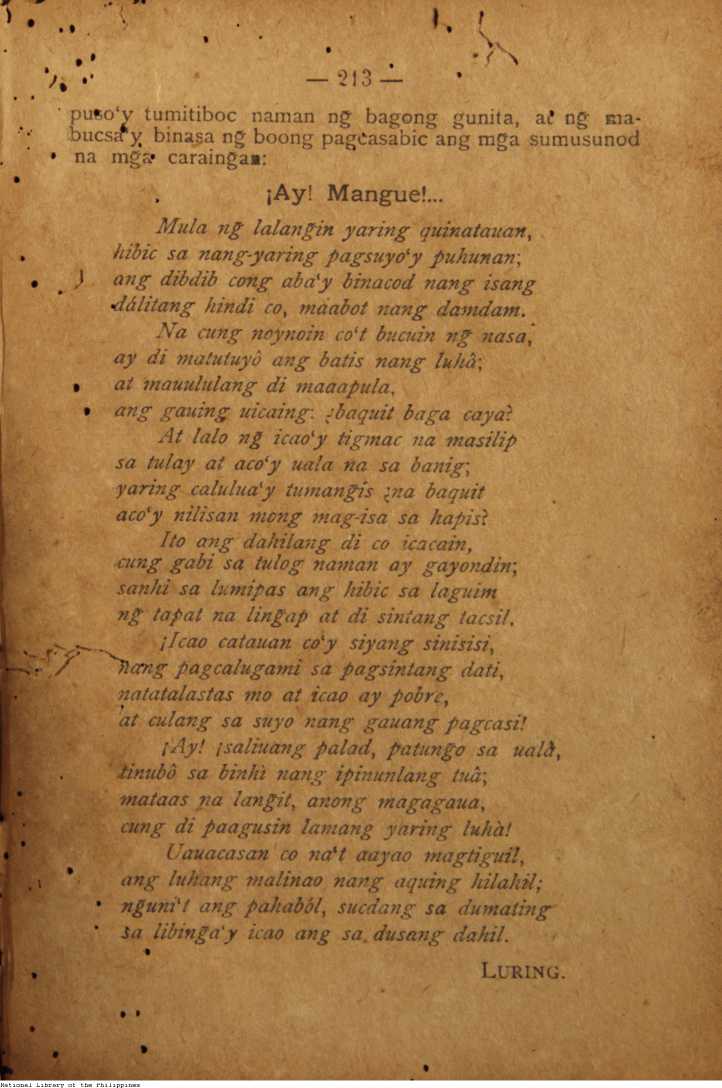 — 213 —
puso‘y tumitiboc naman ng̃ bagong gunita, at ng̃ ma-
bucsa‘y binasa ng̃ boong pagcasabic ang mg̃a sumusunod
na mg̃a caraing̃an:
¡Ay! Mangue!...
Mula ng̃ lalang̃in yaring quinatauan,
hibic sa nang-yaring pagsuyo‘y puhunan;
ang dibdib cong aba‘y binacod nang isang
dálitang hindi co, máabot nang damdam.
Na cung noynoin co‘t bucuin ng̃ nasa,
ay di matutuyô ang batis nang luhâ;
at mauululang di maaapula,
ang gauing uicaing: ¿baquit baga caya?
At lalo ng̃ icao‘y tigmac na masilip
sa tulay at aco‘y uala na sa banig;
yaring calulua‘y tumang̃is ¿na baquit
aco‘y nilisan mong mag-isa sa hapis?
Ito ang dahilang di co icacain,
cung gabi sa tulog naman ay gayondin;
sanhi sa lumipas ang hibic sa laguim
ng̃ tapat na ling̃ap at di sintang tacsil.
¡Icao catauan co‘y siyang sinisisi,
nang pagcalugami sa pagsintang dati,
natatalastas mo at icao ay pobre,
at culang sa suyo nang gauang pagcasi!
¡Ay! ¡saliuang palad, patung̃o sa ualâ,
tinubô sa binhi nang ipinunlang tuâ;
mataas na lang̃it, anong magagaua,
cung di paagusin lamang yaring luhà!
Uauacasan co na‘t aayao magtiguil,
ang luhang malinao nang aquing hilahil;
ng̃uni‘t ang pahaból, sucdang sa dumating
sa libing̃a‘y icao ang sa dusang dahil.
LURING.
National Library of the Philippines